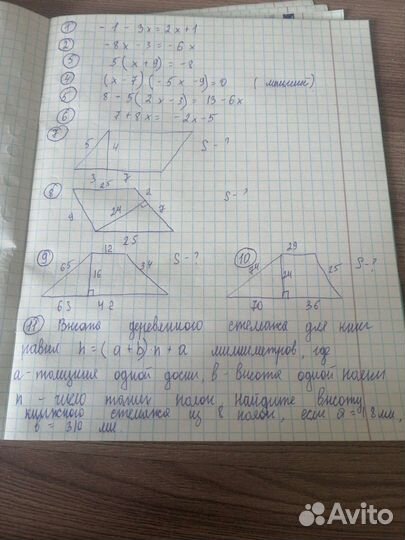 ① -1 - 3x = 2x + 1
② -8x - 3 = -6x
③ 5(x + 9) = -8
④ (x - 7)(-5x - 9) = 0
⑤ 8 - 5(2x - 3) = 13 - 6x
⑥ 7 + 8x = -2x - 5
⑦ 5 4 S - ?
3 7
⑧ 25 2 S - ?
9 24 7
25
⑨ 12 S - ?
65 16 34
63 42
⑩ 29 S - ?
74 24 25
70 36
⑪ Высота деревянного стеллажа для книг
равна h = (a + b) n + a миллиметров, где
a - толщина одной доски, b - высота одной полки
n - число таких полок, найдите высоту
книжного стеллажа из 8 полок, если a = 8 мм,
b = 310 мм.
Avito